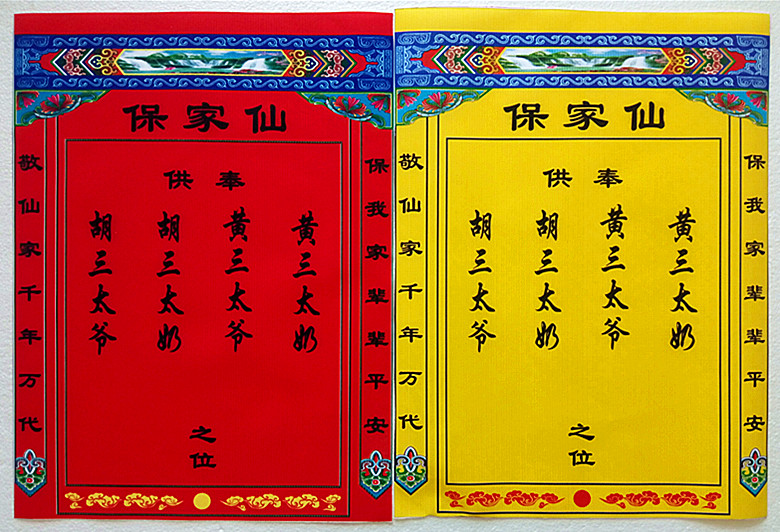 保家仙
敬仙家千年万代
供奉
胡三太爷
胡三太奶
黄三太爷
黄三太奶
之位
保我家辈辈平安
保家仙
敬仙家千年万代
供奉
胡三太爷
胡三太奶
黄三太爷
黄三太奶
之位
保我家辈辈平安